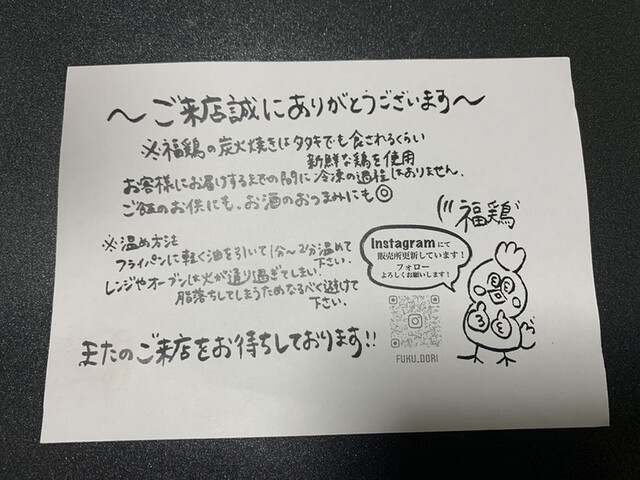 ～ご来店誠にありがとうございます～
※福鶏の炭火焼きはタタキでも食されるくらい
新鮮な鶏を使用
お客様にお届けするまでの間に冷凍の過程はありません。
ご飯のお供にも、お酒のおつまみにも◎
福鶏
※温め方法
フライパンに軽く油を引いて1分～2分温めて
下さい。
レンジやオーブンは火が通り過ぎてしまい
脂落ちしてしまうためなるべく避けて
下さい。
Instagramにて
販売所更新しています！
フォロー
よろしくお願いします！
FUKU_DORI
またのご来店をお待ちしております!!